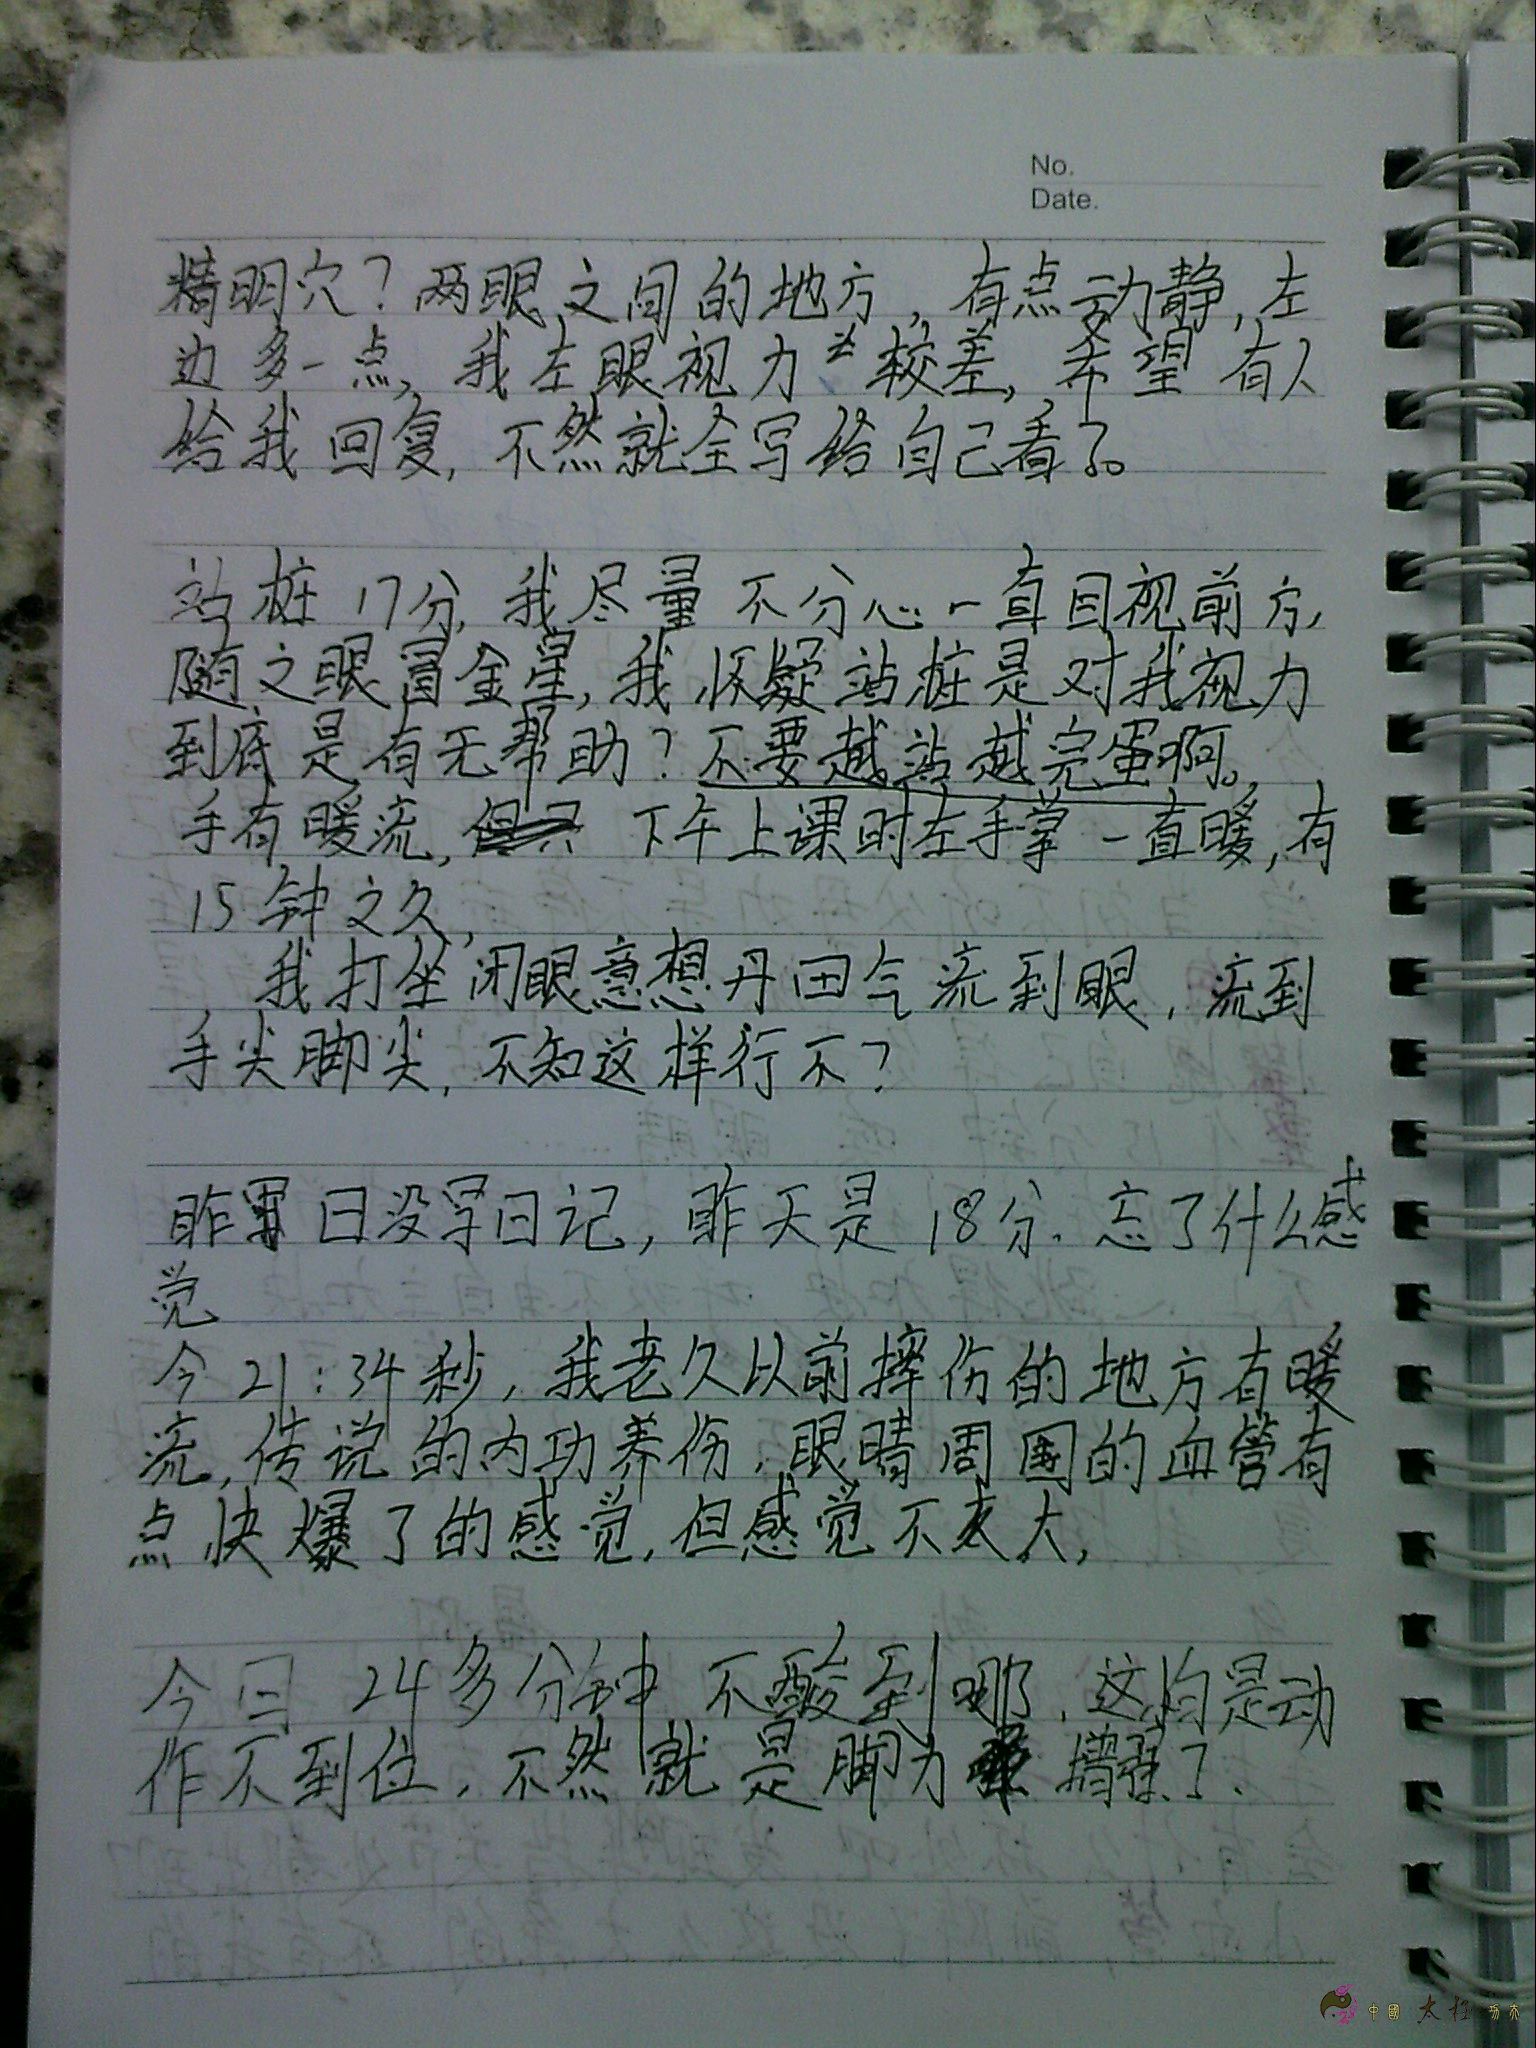 No.
Date.
精明穴？两眼之间的地方，有点动静，左
边多一点，我左眼视力较差，希望有人
给我回复，不然就全写给自己看了。
站桩17分，我尽量不分心一直目视前方，
随之眼冒金星，我怀疑站桩是对我视力
到底是有无帮助？不要越站越完蛋啊。
手有暖流，下午上课时左手掌一直暖，有
15钟之久，
我打坐闭眼意想丹田气流到眼，流到
手尖脚尖，不知这样行不？
昨日没写日记，昨天是18分．忘了什么感
觉
今21:34秒，我老久以前摔伤的地方有暖
流，传说的内功养伤，眼睛周围的血管有
点快爆了的感觉，但感觉不太大，
今日 24多分钟 不酸到哪，这均是动
作不到位，不然就是脚力增强了．
中國太极功夫